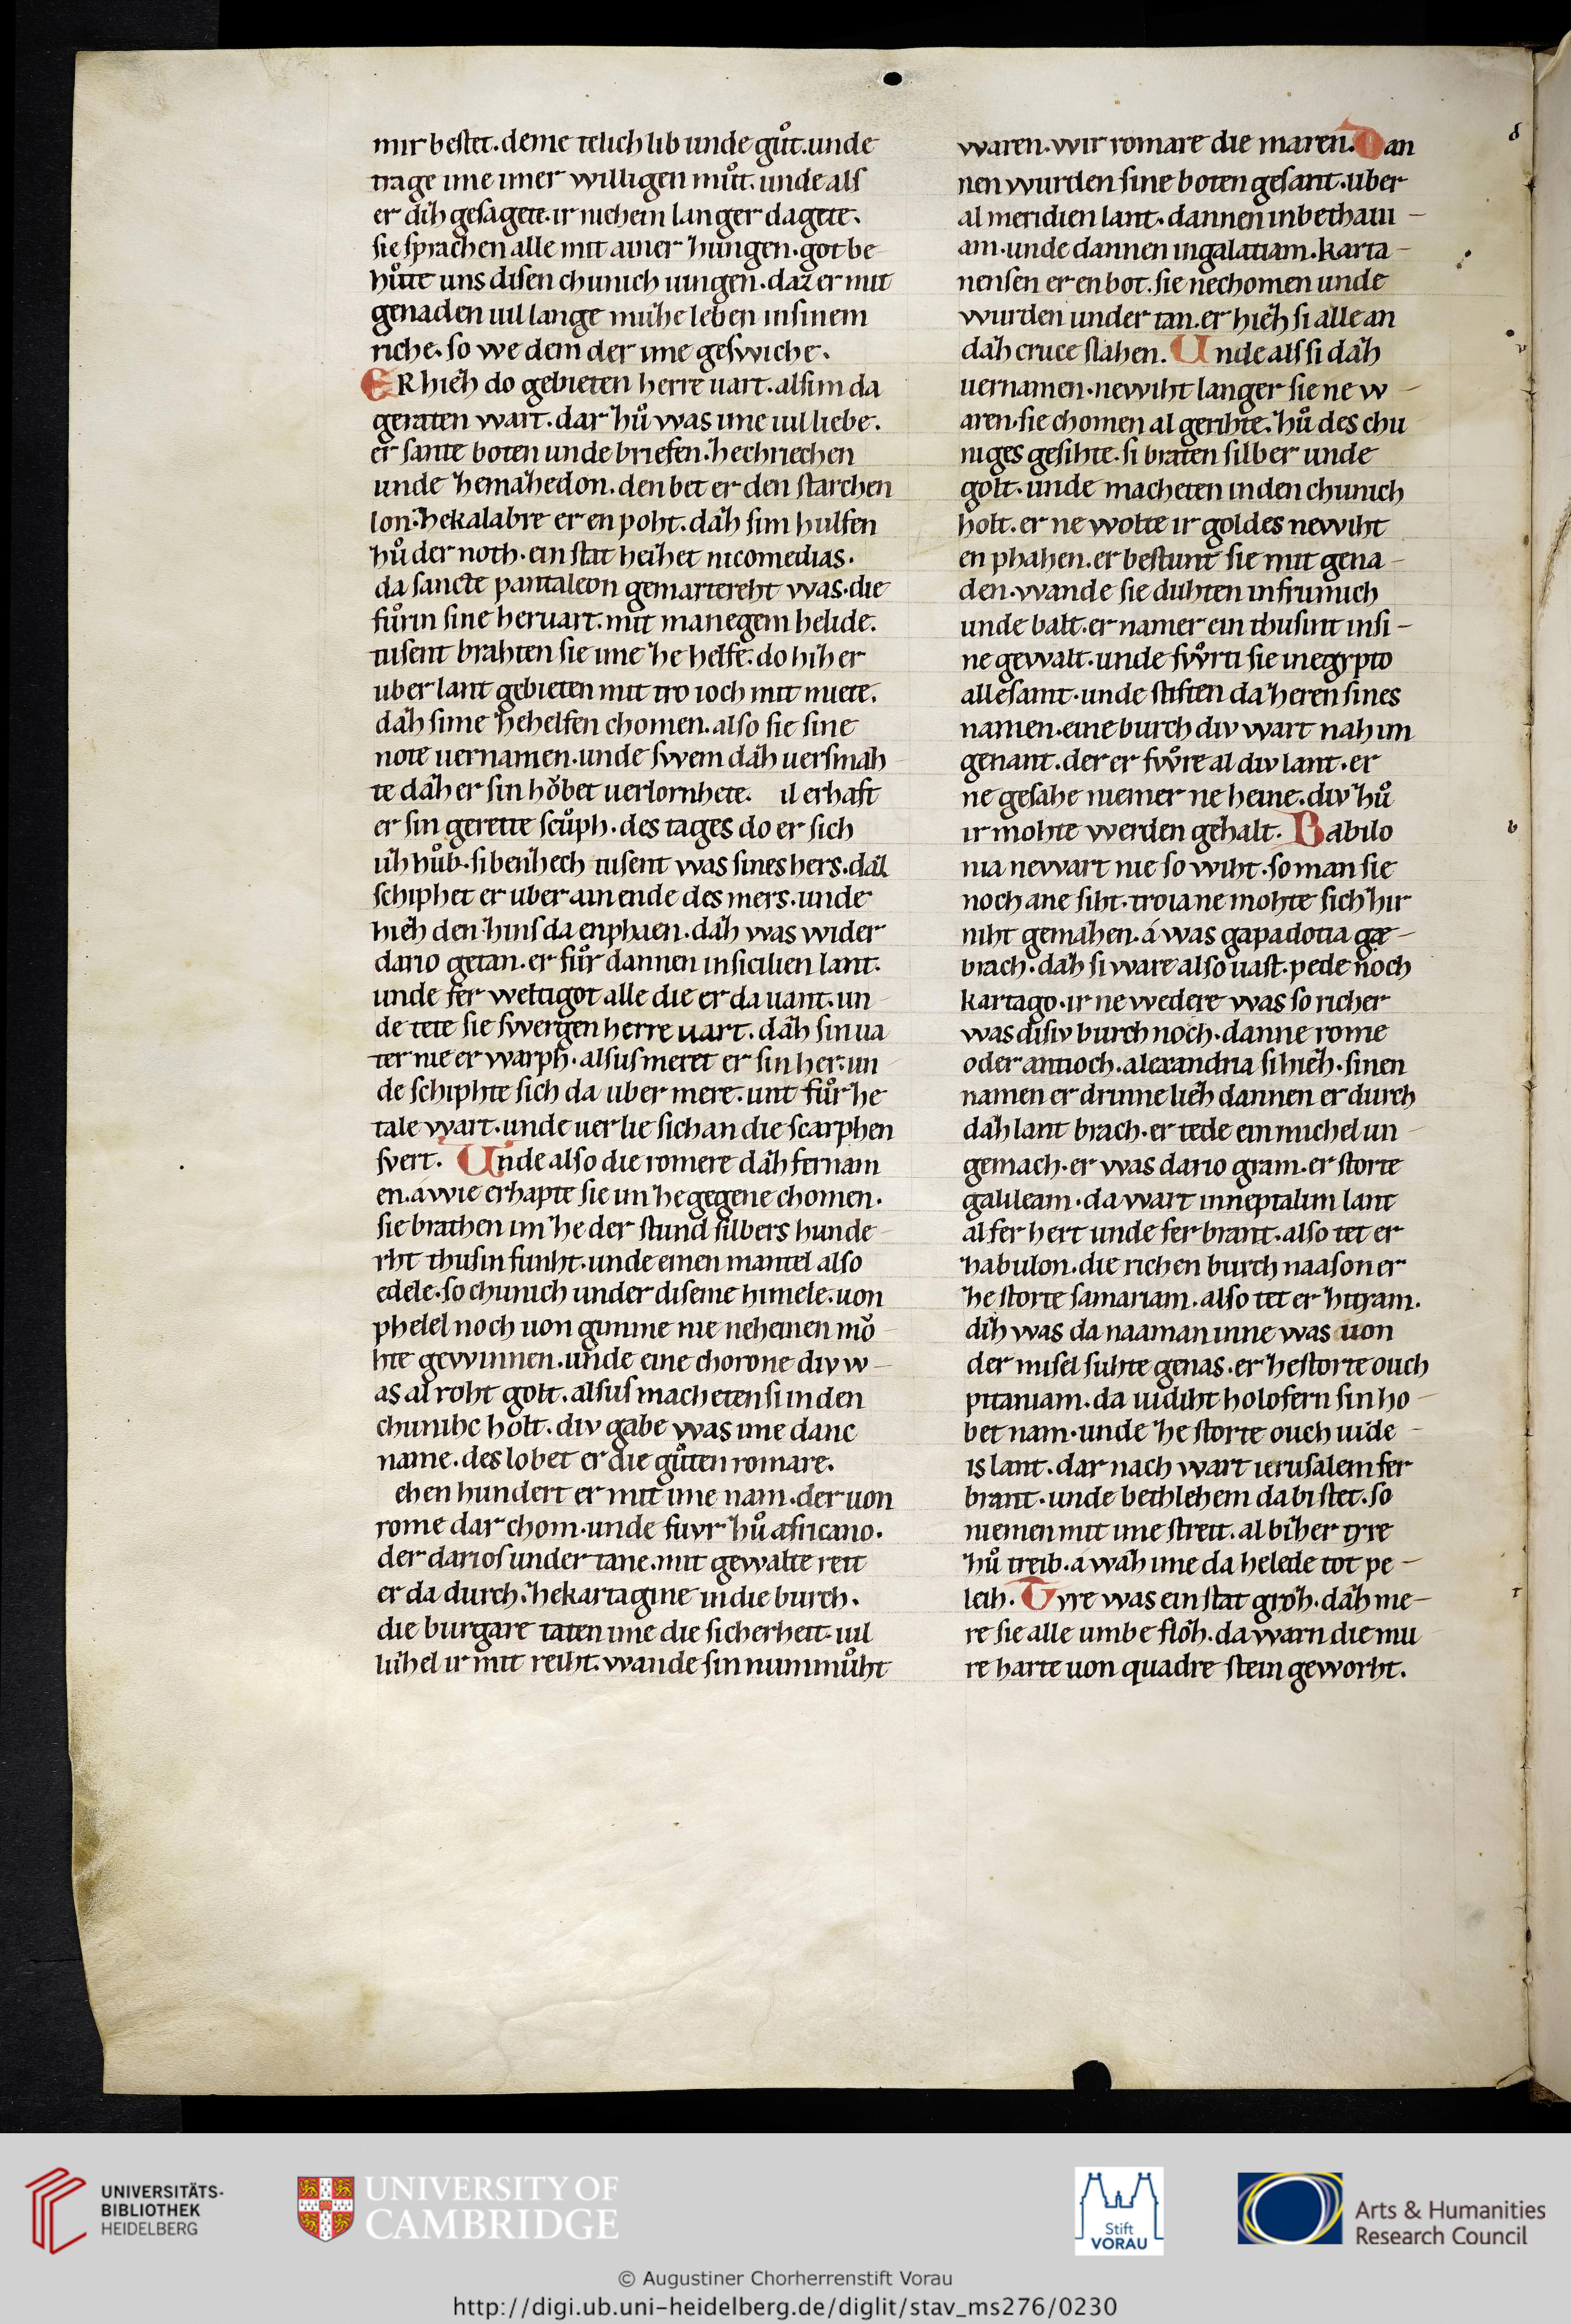 mir bestet. deme teilich lib unde gůt. unde
trage ime imer willigen můt. unde als
er diꝣ gesagete. ir nichein langer dagete.
sie sprachen alle mit ainer ꝣungen. got be
hůtte uns disen chunich iungen. daz er mit
genaden uil lange můꝣe leben in sinem
riche. so we dem der ime geswiche.
ER hieꝣ do gebieten herre uart. als im da
geraten wart. dar ꝣů was ime uil liebe.
er sante boten unde briefen. ꝣe chriechen
unde ꝣe maꝣedon. den bet er den starchen
lon. ꝣe kalabre er en poht. daꝣ sim hulfen
ꝣů der noth. ein stat heiꝣet nicomedias.
da sancte pantaleon gemartereht was. die
fůrin sine heruart. mit manegem helide.
tusent brahten sie ime ꝣe helfe. do hiꝣ er
uber lant gebieten mit tro ioch mit miete.
daꝣ sime ꝣe helfen chomen. also sie sine
note uernamen. unde swem daꝣ uersmah
te daꝣ er sin hǒbet uerlorn hete. il erhaft
er sin gerette scůph. des tages do er sich
uꝣ hůb. sibenꝣech tusent was sines hers. dal
schiphet er uber ain ende des mers. unde
hieꝣ den ꝣins da enphaen. daꝣ was wider
dario getan. er fůr dannen in sicilien lant.
unde fer weltigot alle die er da uant. un
de tete sie swergen herre uart. daꝣ sin ua
ter nie er warph. alsus meret er sin her. un
de schiphte sich da uber mere. unt fůr ꝣe
tale wart. unde uerlie sich an die scarphen
svert. Unde also die romere daꝣ fernam
en. á wie erhapte sie im ꝣe gegene chomen.
sie brathen im ꝣe der stund silbers hunde
rht thusin funht. unde einen mantel also
edele. so chunich under diseme himele. uon
phelel noch uon gimme nie neheinen mǒ
hte gewinnen. unde eine chorone div w
as al roht golt. alsus macheten si in den
chunihc holt. div gabe was ime danc
name. des lobet er die gůten romare.
ehen hundert er mit ime nam. der uon
rome dar chom. unde fuvr ꝣů africano.
der darios under tane. mit gewalte reit
er da durch. ꝣe kartagine in die burch.
die burgare taten ime die sicherheit. uil
luꝣel ir mit reiht. wande sin nummůht
waren. wir romare die maren. Dan
nen wurden sine boten gesant. uber
al meridien lant. dannen in bethaui
am. unde dannen in galatiam. karta
nensen er en bot. sie ne chomen unde
wurden under tan. er hieꝣ si alle an
daꝣ cruce slahen. Unde als si daꝣ
uernamen. newiht langer sie ne w
aren. sie chomen al gerihte. ꝣů des chu
niges gesihte. si braten silber unde
golt. unde macheten in den chunich
holt. er ne wolte ir goldes newiht
en phahen. er bestunt sie mit gena
den. wande sie duhten in frumich
unde balt. er namer ein thusint in si
ne gewalt. unde fvǒrti sie in egypto
alle samt. unde stiften da ꝣeren sines
namen. eine burch div wart nah im
genant. der er fvǒre al div lant. er
ne gesahe niemer ne heine. div ꝣů
ir mohte werden geꝣalt. Babilo
nia newart nie so wiht. so man sie
noch ane siht. troia ne mohte sich ꝣir
niht gemaꝣen. á was gapadotia gæ
brach. daꝣ si ware also uast. pede noch
kartago. ir ne wedere was so richer
was disiv burch noch. danne rome
oder antioch. alexandria si hieꝣ. sinen
namen er drinne lieꝣ dannen er durch
daꝣ lant brach. er tede ein michel un
gemach. er was dario gram. er storte
galileam. da wart in neptalim lant
al fer hert unde fer brant. also tet er
ꝣabulon. die richen burch naason er
ꝣe storte samariam. also tet er ꝣityram.
diꝣ was da naaman inne was uon
der misel suhte genas. er ꝣestorte ouch
pitaniam. da uidiht holofern sin ho
bet nam. unde ꝣe storte ouch iude
is lant. dar nach wart ierusalem fer
brant. unde bethlehem da bi stet. so
niemen mit ime streit. al biꝣ er tyre
ꝣů treib. á waꝣ ime da helede tot pe
leib. Tyre was ein stat groꝣ. daꝣ me
re sie alle umbe floꝣ. da warn die mu
re harte uon quadre stein geworht.
δ
b
t
UNIVERSITÄTS-
BIBLIOTHEK
HEIDELBERG
UNIVERSITY OF
CAMBRIDGE
Stift
VORAU
Arts & Humanities
Research Council
© Augustiner Chorherrenstift Vorau
http://digi.ub.uni-heidelberg.de/diglit/stav_ms276/0230